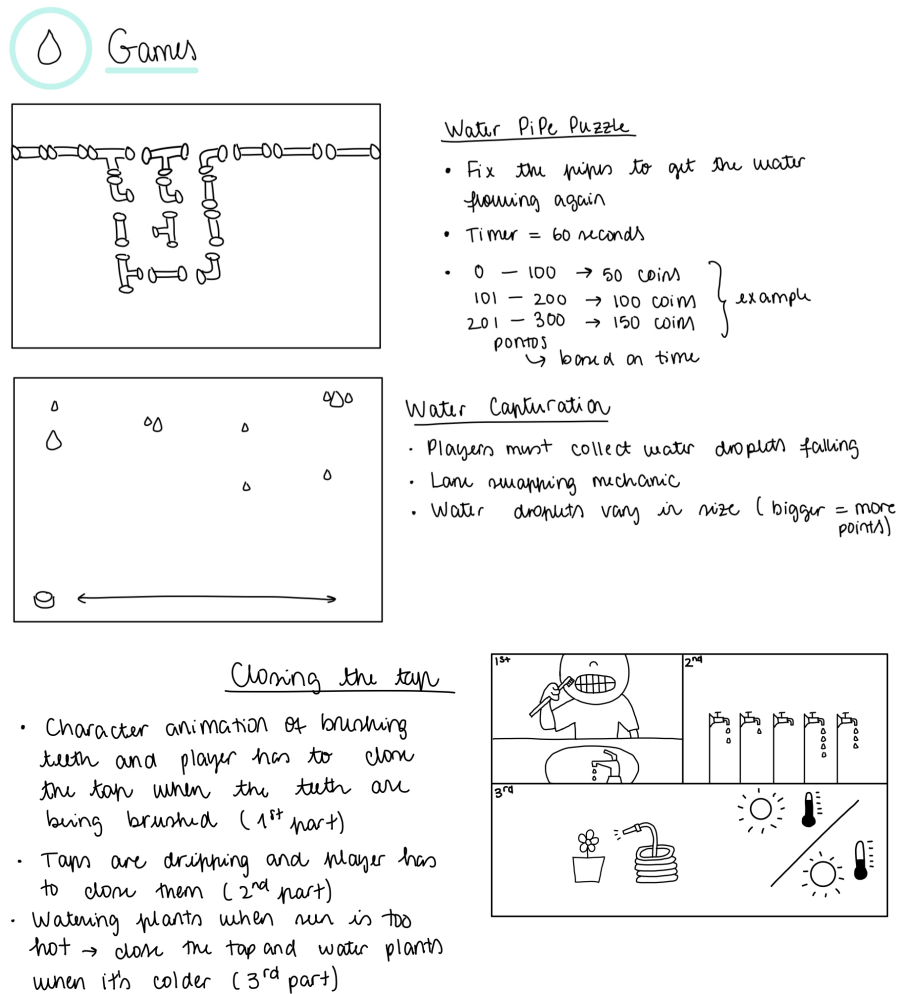 Games
Water Pipe Puzzle
• Fix the pipes to get the water
flowing again
• Timer = 60 seconds
• 0 – 100 → 50 coins
101 – 200 → 100 coins
201 – 300 → 150 coins
example
pontos
↳ based on time
Water Capturation
• Players must collect water droplets falling
• Lane swapping mechanic
• Water droplets vary in size (bigger = more
points)
Closing the tap
• Character animation of brushing
teeth and player has to close
the tap when the teeth are
being brushed (1st part)
• Taps are dripping and player has
to close them (2nd part)
• Watering plants when sun is too
hot → close the tap and water plants
when it's colder (3rd part)
1st
2nd
3rd